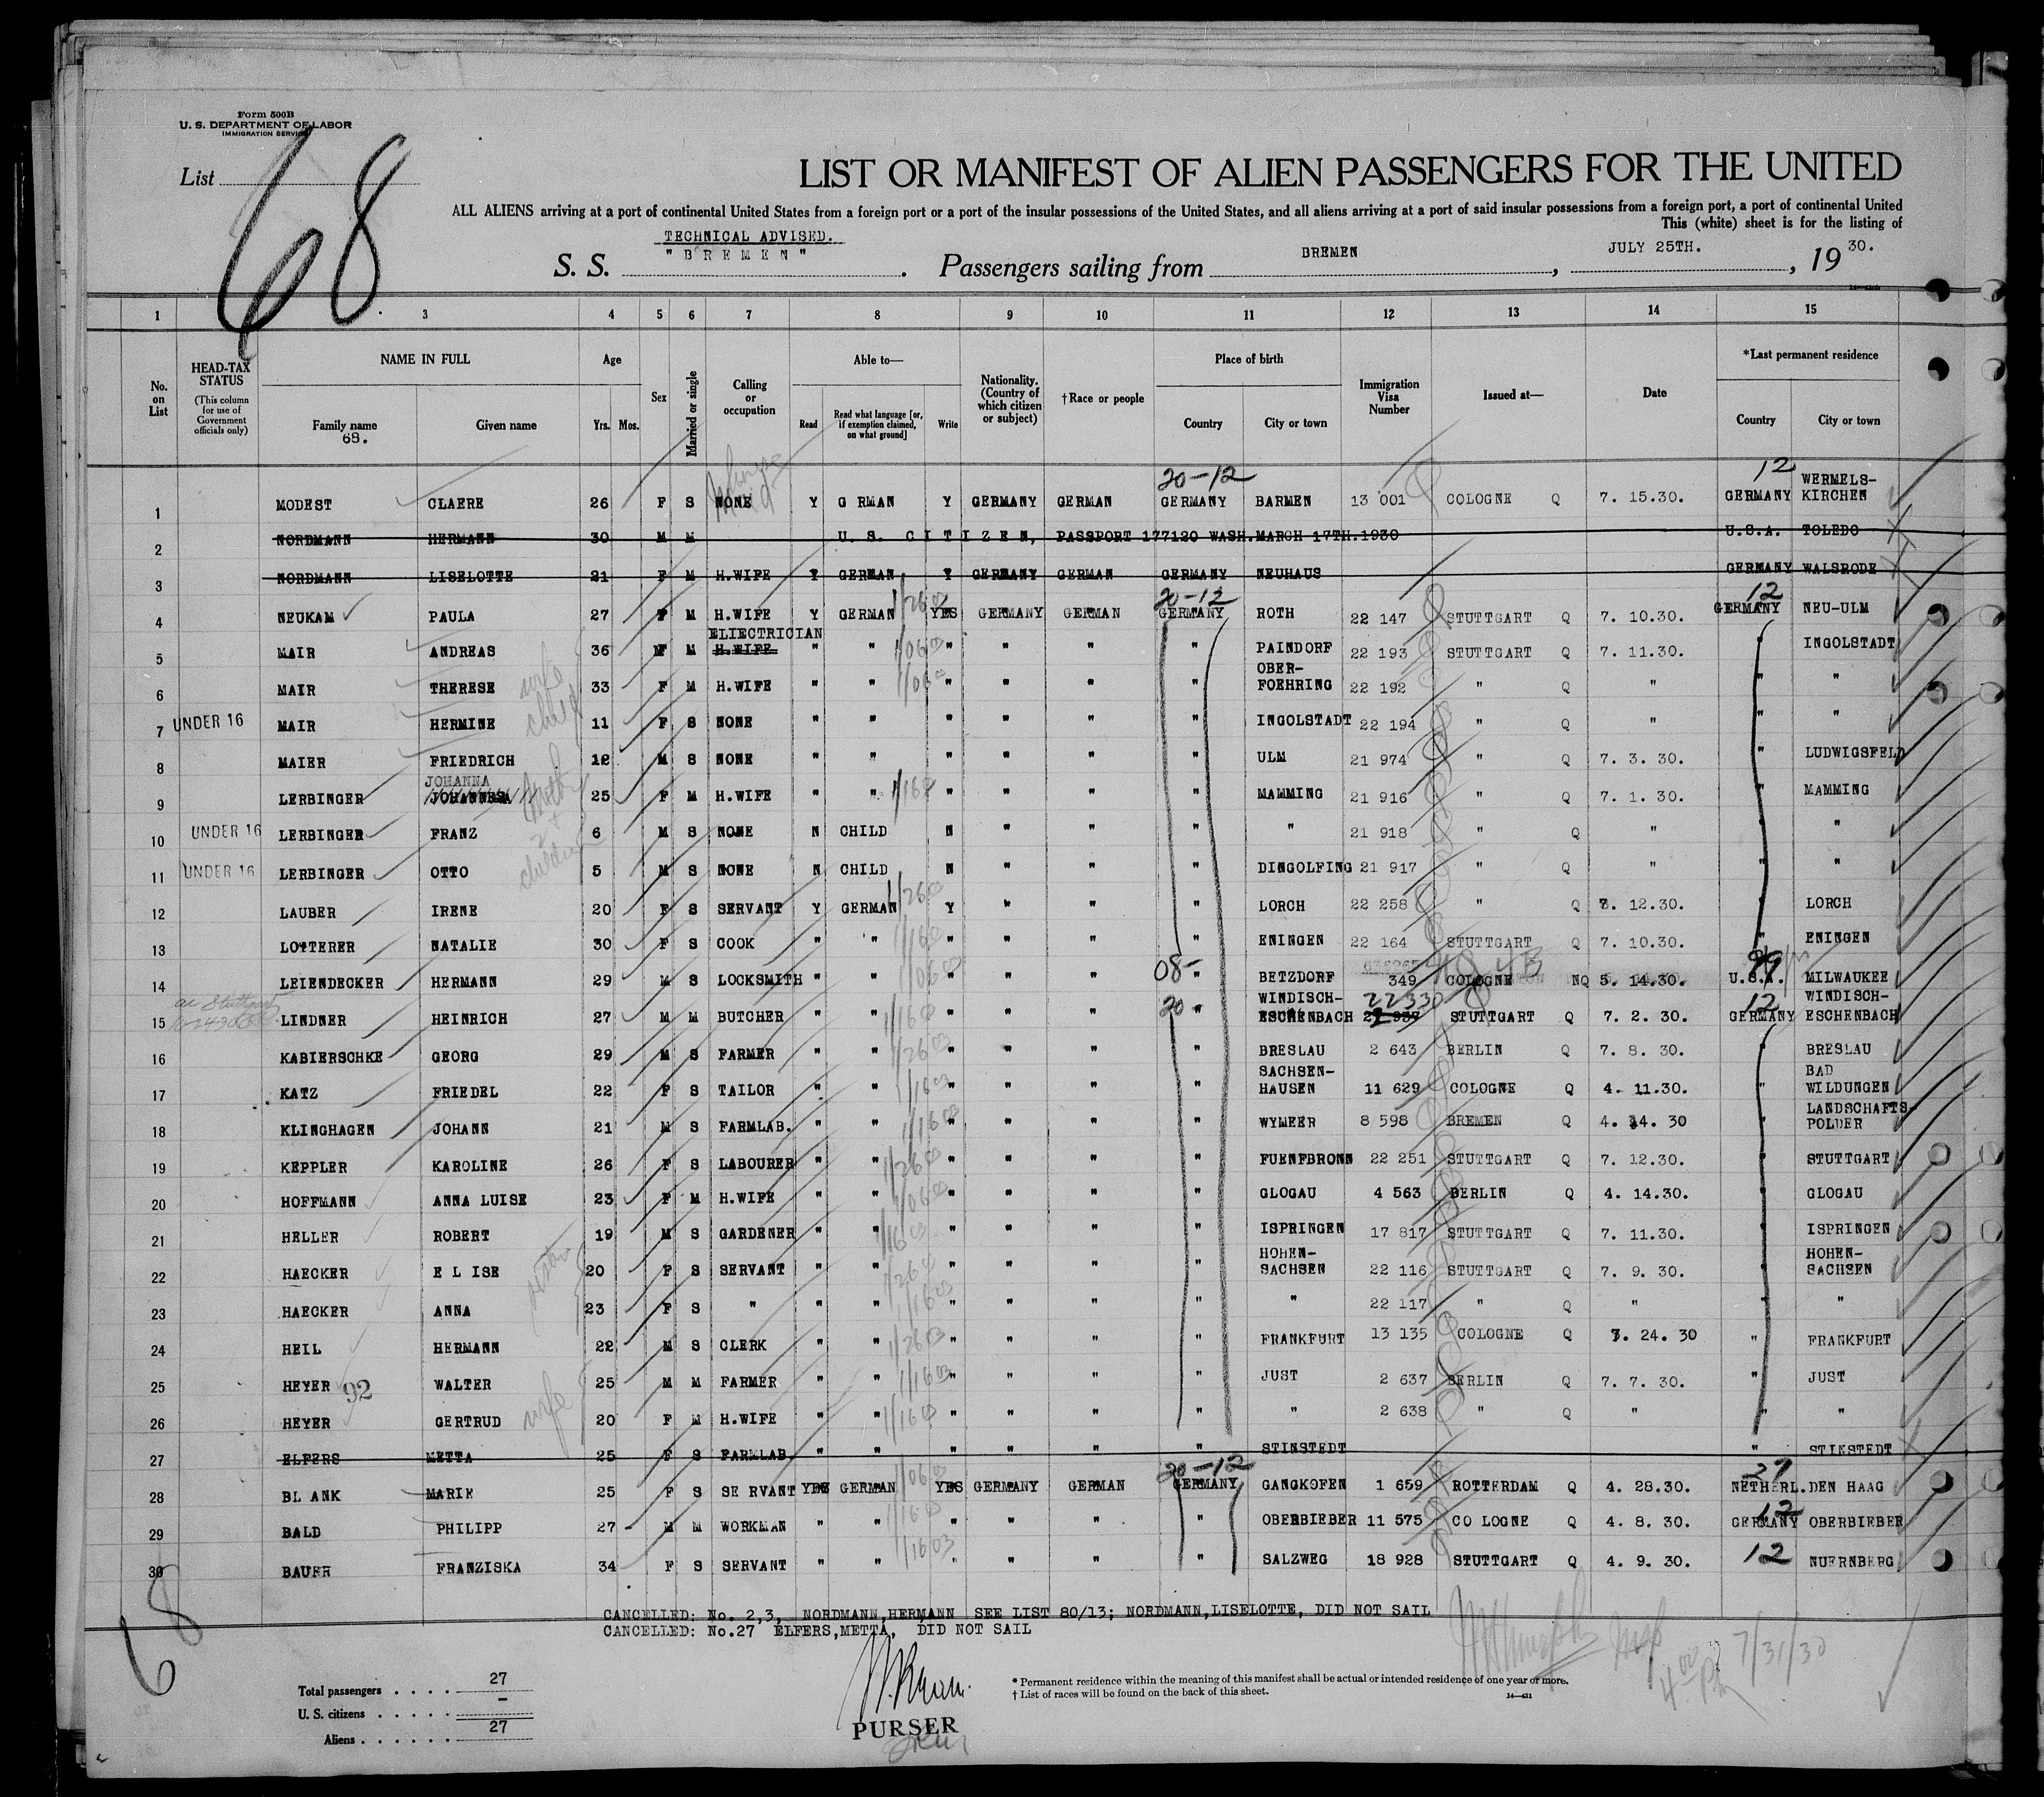 Form 500B
U. S. DEPARTMENT OF LABOR
IMMIGRATION SERVICE
List 68
LIST OR MANIFEST OF ALIEN PASSENGERS FOR THE UNITED
ALL ALIENS arriving at a port of continental United States from a foreign port or a port of the insular possessions of the United States, and all aliens arriving at a port of said insular possessions from a foreign port, a port of continental United
This (white) sheet is for the listing of
TECHNICAL ADVISED.
S. S. "BREMEN" . Passengers sailing from BREMEN , JULY 25TH. , 19 30.
1 3 4 5 6 7 8 9 10 11 12 13 14 15
No. on List
HEAD-TAX STATUS
(This column for use of Government officials only)
NAME IN FULL
Family name
68.
Given name
Age
Yrs. Mos.
Sex
Married or single
Calling or occupation
Able to—
Read
Read what language [or, if exemption claimed, on what ground]
Write
Nationality. (Country of which citizen or subject)
†Race or people
Place of birth
Country City or town
Immigration Visa Number
Issued at—
Date
*Last permanent residence
Country City or town
20-12 12
1 MODEST CLAERE 26 F S NONE Y G RMAN Y GERMANY GERMAN GERMANY BARMEN 13 001 COLOGNE Q 7. 15.30. GERMANY WERMELS-KIRCHEN
2 NORDMANN HERMANN 30 M M U. S. CITIZEN, PASSPORT 177120 WASH.MARCH 17TH.1930 U.S.A. TOLEDO
3 NORDMANN LISELOTTE 21 F M H.WIFE Y GERMAN Y GERMANY GERMAN GERMANY NEUHAUS GERMANY WALSRODE
20-12 12
4 NEUKAM PAULA 27 F M H.WIFE Y GERMAN YES GERMANY GERMAN GERMANY ROTH 22 147 STUTTGART Q 7. 10.30. GERMANY NEU-ULM
5 MAIR ANDREAS 36 M M ELIECTRICIAN H.WIFE " " " " " " PAINDORF 22 193 STUTTGART Q 7. 11.30. " INGOLSTADT
6 MAIR THERESE wife 33 F M H.WIFE " " " " " " OBER-FOEHRING 22 192 " Q " " "
7 UNDER 16 MAIR HERMINE child 11 F S NONE " " " " " " INGOLSTADT 22 194 " Q " " "
8 MAIER FRIEDRICH 12 M S NONE " " " " " " ULM 21 974 " Q 7. 3. 30. " LUDWIGSFELD
9 LERBINGER JOHANNA 25 F M H.WIFE " " " " " " MAMMING 21 916 " Q 7. 1. 30. " MAMMING
10 UNDER 16 LERBINGER FRANZ 6 M S NONE N CHILD N " " " " 21 918 " Q " " "
11 UNDER 16 LERBINGER OTTO 5 M S NONE N CHILD N " " " DINGOLFING 21 917 " Q " " "
12 LAUBER IRENE 20 F S SERVANT Y GERMAN Y " " " LORCH 22 258 " Q 7. 12.30. " LORCH
13 LOTTERER NATALIE 30 F S COOK " " " " " " ENINGEN 22 164 STUTTGART Q 7. 10.30. " ENINGEN
14 LEIENDECKER HERMANN 29 M S LOCKSMITH " " " " " 08- " BETZDORF 349 COLOGNE NQ 5. 14.30. U.S.A. MILWAUKEE
15 LINDNER HEINRICH 27 M M BUTCHER " " " " " 20- " WINDISCH-ESCHENBACH 22330 STUTTGART Q 7. 2. 30. 12 GERMANY WINDISCH-ESCHENBACH
16 KABIERSCHKE GEORG 29 M S FARMER " " " " " " BRESLAU 2 643 BERLIN Q 7. 8. 30. " BRESLAU
17 KATZ FRIEDEL 22 F S TAILOR " " " " " " SACHSEN-HAUSEN 11 629 COLOGNE Q 4. 11.30. " BAD WILDUNGEN
18 KLINGHAGEN JOHANN 21 M S FARMLAB. " " " " " " WYMEER 8 598 BREMEN Q 4. 14. 30 " LANDSCHAFTS-POLDER
19 KEPPLER KAROLINE 26 F S LABOURER " " " " " " FUENFBRONN 22 251 STUTTGART Q 7. 12.30. " STUTTGART
20 HOFFMANN ANNA LUISE 23 F M H.WIFE " " " " " " GLOGAU 4 563 BERLIN Q 4. 14.30. " GLOGAU
21 HELLER ROBERT 19 M S GARDENER " " " " " " ISPRINGEN 17 817 STUTTGART Q 7. 11.30. " ISPRINGEN
22 HAECKER E L ISE 20 F S SERVANT " " " " " " HOHEN-SACHSEN 22 116 STUTTGART Q 7. 9. 30. " HOHEN-SACHSEN
23 HAECKER ANNA 23 F S " " " " " " " " 22 117 " Q " " "
24 HEIL HERMANN 22 M S CLERK " " " " " " FRANKFURT 13 135 COLOGNE Q 7. 24. 30 " FRANKFURT
25 HEYER 92 WALTER 25 M M FARMER " " " " " " JUST 2 637 BERLIN Q 7. 7. 30. " JUST
26 HEYER GERTRUD wife 20 F M H.WIFE " " " " " " " 2 638 " Q " " "
27 ELFERS METTA 25 F S FARMLAB. " " " " " " STINSTEDT " STINSTEDT
20-12 27
28 BL ANK MARIE 25 F S SE RVANT YES GERMAN YES GERMANY GERMAN GERMANY GANGKOFEN 1 659 ROTTERDAM Q 4. 28.30. NETHERL. DEN HAAG
29 BALD PHILIPP 27 M M WORKMAN " " " " " " OBERBIEBER 11 575 CO LOGNE Q 4. 8. 30. 12 GERMANY OBERBIEBER
30 BAUER FRANZISKA 34 F S SERVANT " " " " " " SALZWEG 18 928 STUTTGART Q 4. 9. 30. 12 NUERNBERG
CANCELLED: No. 2,3, NORDMANN,HERMANN SEE LIST 80/13; NORDMANN,LISELOTTE, DID NOT SAIL
CANCELLED: No.27 ELFERS,METTA, DID NOT SAIL
68
7/31/30
4 00 PM
Total passengers . . . . 27
U. S. citizens . . . . . –
Aliens . . . . . . 27
PURSER
* Permanent residence within the meaning of this manifest shall be actual or intended residence of one year or more.
† List of races will be found on the back of this sheet.
14—431